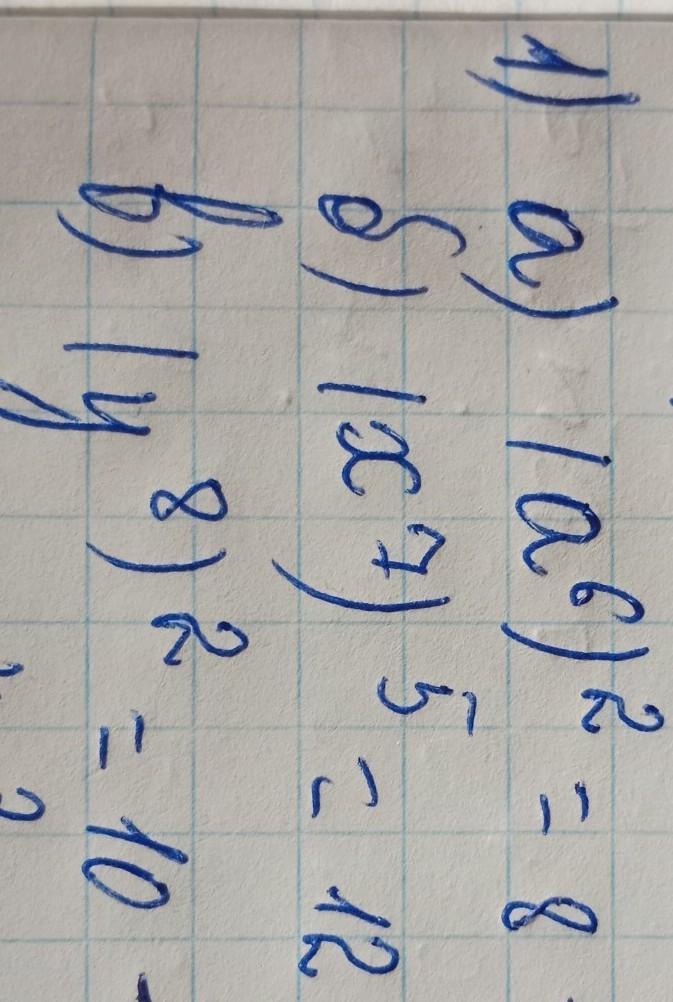 1) а) (a⁶)² = 8
б) (x⁷)⁵ = 12
в) (y⁸)² = 10